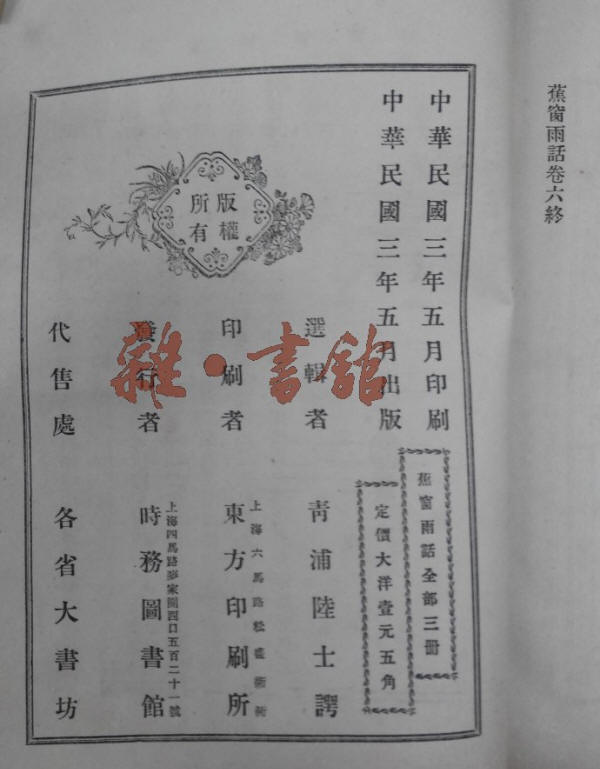 蕉窗雨話卷六終
中華民國三年五月印刷
中華民國三年五月出版
蕉窗雨話全部三冊
定價大洋壹元五角
版權
所有
選輯者 青浦陸士諤
印刷者 上海六馬路 東方印刷所
發行者 上海四馬路 四百五百二十一號 時務圖書館
代售處 各省大書坊
雜·書館